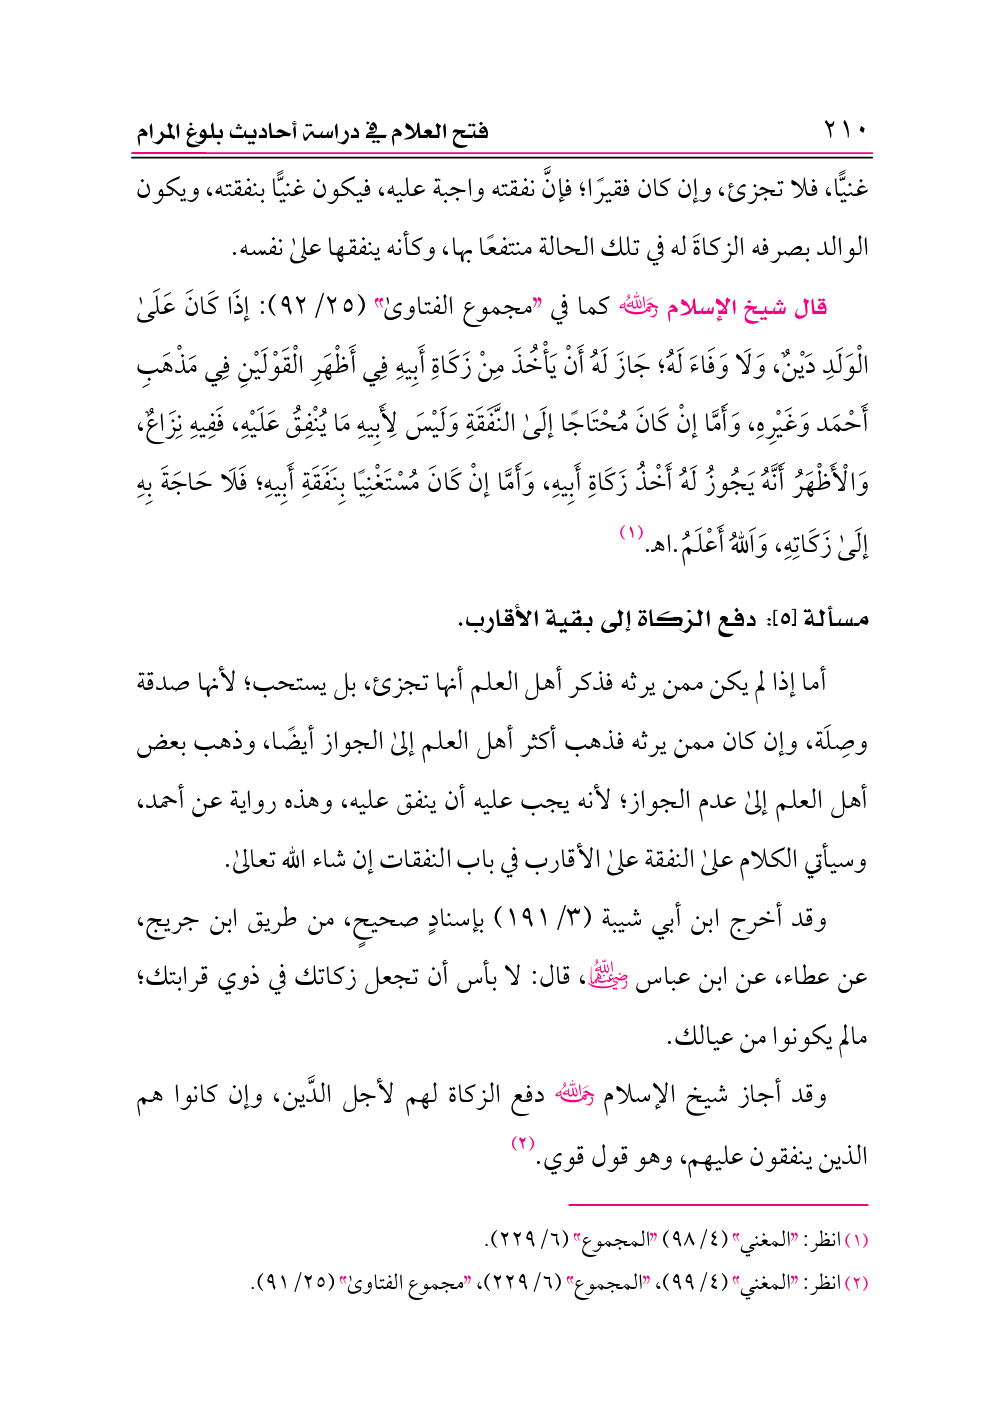 ٢١٠ فتح العلام في دراسة أحاديث بلوغ المرام
غنيًّا، فلا تجزئ، وإن كان فقيرًا؛ فإنَّ نفقته واجبة عليه، فيكون غنيًّا بنفقته، ويكون
الوالد بصرفه الزكاةَ له في تلك الحالة منتفعًا بها، وكأنه ينفقها علىٰ نفسه.
قال شيخ الإسلام رَحِمَهُ اللَّهُ كما في "مجموع الفتاوىٰ" (٢٥/ ٩٢): إذَا كَانَ عَلَىٰ
الْوَلَدِ دَيْنٌ، وَلَا وَفَاءَ لَهُ؛ جَازَ لَهُ أَنْ يَأْخُذَ مِنْ زَكَاةِ أَبِيهِ فِي أَظْهَرِ الْقَوْلَيْنِ فِي مَذْهَبِ
أَحْمَد وَغَيْرِهِ، وَأَمَّا إنْ كَانَ مُحْتَاجًا إلَىٰ النَّفَقَةِ وَلَيْسَ لِأَبِيهِ مَا يُنْفِقُ عَلَيْهِ، فَفِيهِ نِزَاعٌ،
وَالْأَظْهَرُ أَنَّهُ يَجُوزُ لَهُ أَخْذُ زَكَاةِ أَبِيهِ، وَأَمَّا إنْ كَانَ مُسْتَغْنِيًا بِنَفَقَةِ أَبِيهِ؛ فَلَا حَاجَةَ بِهِ
إلَىٰ زَكَاتِهِ، وَاَللهُ أَعْلَمُ.اهـ.(١)
مسألة [٥]: دفع الزكاة إلى بقية الأقارب.
أما إذا لم يكن ممن يرثه فذكر أهل العلم أنها تجزئ، بل يستحب؛ لأنها صدقة
وصِلَة، وإن كان ممن يرثه فذهب أكثر أهل العلم إلىٰ الجواز أيضًا، وذهب بعض
أهل العلم إلىٰ عدم الجواز؛ لأنه يجب عليه أن ينفق عليه، وهذه رواية عن أحمد،
وسيأتي الكلام علىٰ النفقة علىٰ الأقارب في باب النفقات إن شاء الله تعالىٰ.
وقد أخرج ابن أبي شيبة (٣/ ١٩١) بإسنادٍ صحيحٍ، من طريق ابن جريج،
عن عطاء، عن ابن عباس رَضِيَ اللَّهُ عَنْهُمَا، قال: لا بأس أن تجعل زكاتك في ذوي قرابتك؛
مالم يكونوا من عيالك.
وقد أجاز شيخ الإسلام رَحِمَهُ اللَّهُ دفع الزكاة لهم لأجل الدَّين، وإن كانوا هم
الذين ينفقون عليهم، وهو قول قوي.(٢)
(١) انظر: "المغني" (٤/ ٩٨) "المجموع" (٦/ ٢٢٩).
(٢) انظر: "المغني" (٤/ ٩٩)، "المجموع" (٦/ ٢٢٩)، "مجموع الفتاوىٰ" (٢٥/ ٩١).